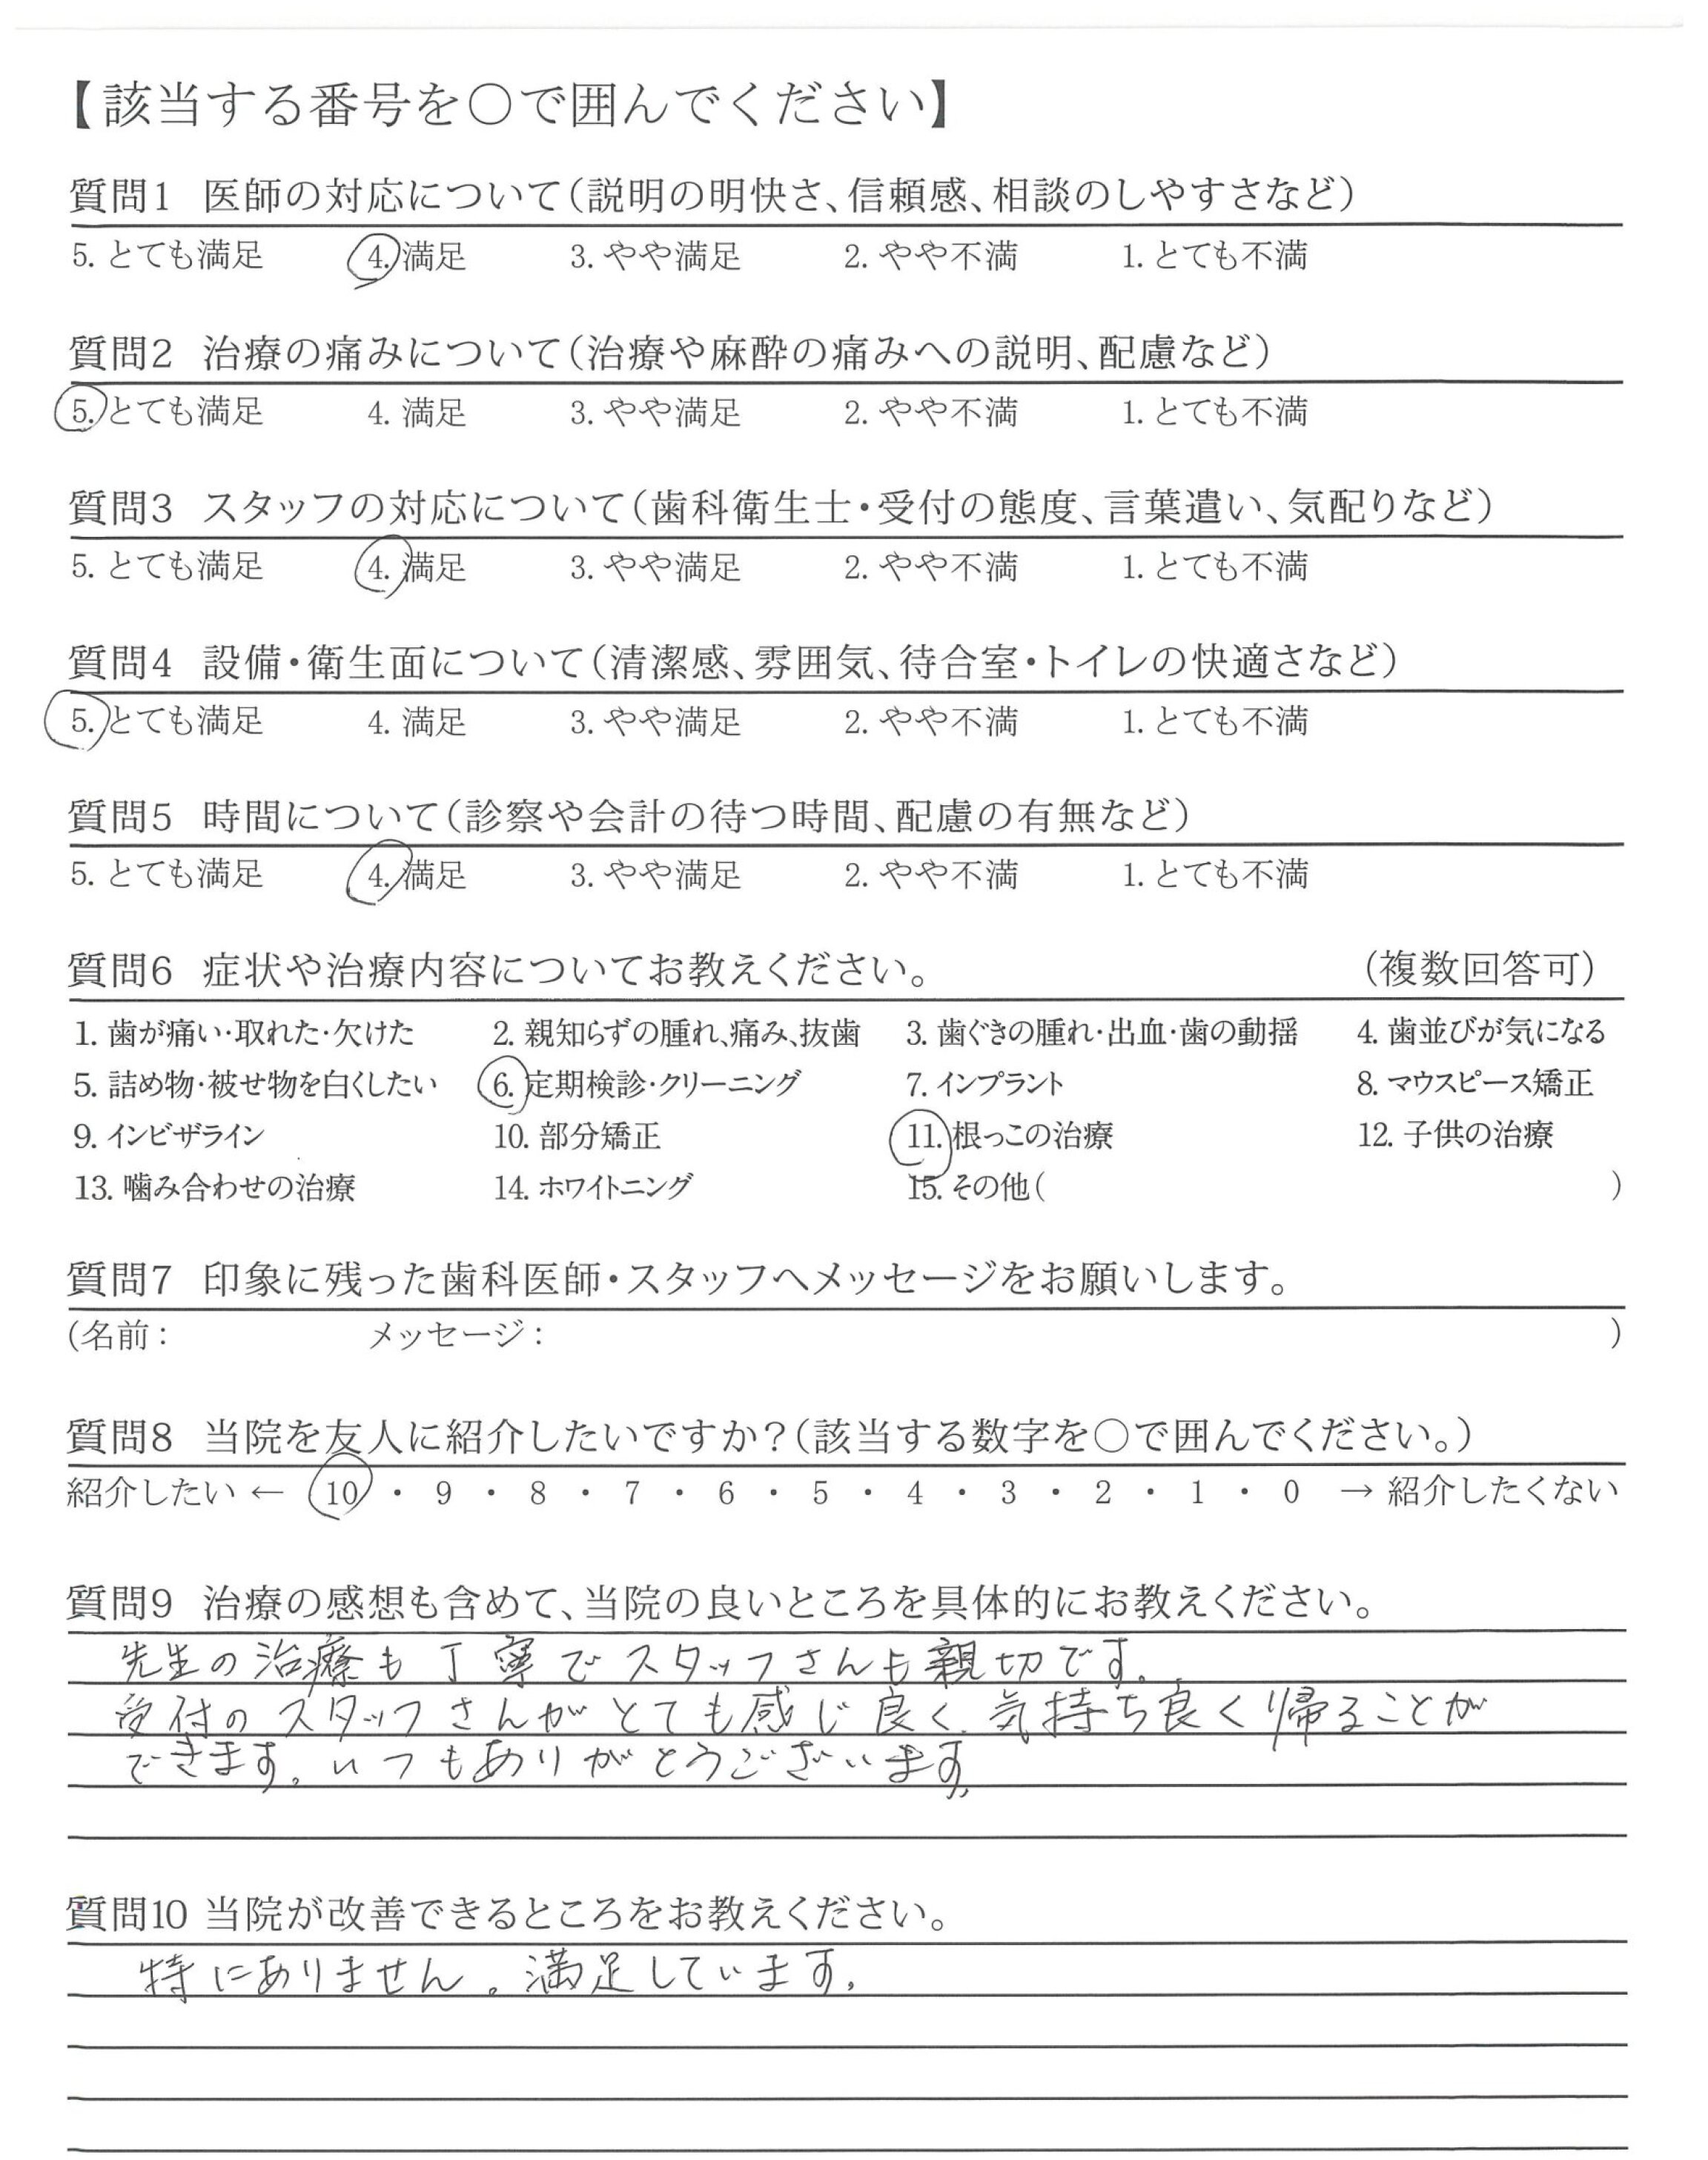 【該当する番号を○で囲んでください】
質問1 医師の対応について(説明の明快さ、信頼感、相談のしやすさなど)
5. とても満足 4. 満足 3. やや満足 2. やや不満 1. とても不満
質問2 治療の痛みについて(治療や麻酔の痛みへの説明、配慮など)
5. とても満足 4. 満足 3. やや満足 2. やや不満 1. とても不満
質問3 スタッフの対応について(歯科衛生士・受付の態度、言葉遣い、気配りなど)
5. とても満足 4. 満足 3. やや満足 2. やや不満 1. とても不満
質問4 設備・衛生面について(清潔感、雰囲気、待合室・トイレの快適さなど)
5. とても満足 4. 満足 3. やや満足 2. やや不満 1. とても不満
質問5 時間について(診察や会計の待つ時間、配慮の有無など)
5. とても満足 4. 満足 3. やや満足 2. やや不満 1. とても不満
質問6 症状や治療内容についてお教えください。 (複数回答可)
1. 歯が痛い・取れた・欠けた 2. 親知らずの腫れ、痛み、抜歯 3. 歯ぐきの腫れ・出血・歯の動揺 4. 歯並びが気になる
5. 詰め物・被せ物を白くしたい 6. 定期検診・クリーニング 7. インプラント 8. マウスピース矯正
9. インビザライン 10. 部分矯正 11. 根っこの治療 12. 子供の治療
13. 噛み合わせの治療 14. ホワイトニング 15. その他( )
質問7 印象に残った歯科医師・スタッフへメッセージをお願いします。
(名前: メッセージ: )
質問8 当院を友人に紹介したいですか?(該当する数字を○で囲んでください。)
紹介したい ← 10 ・ 9 ・ 8 ・ 7 ・ 6 ・ 5 ・ 4 ・ 3 ・ 2 ・ 1 ・ 0 → 紹介したくない
質問9 治療の感想も含めて、当院の良いところを具体的にお教えください。
先生の治療も丁寧でスタッフさんも親切です。
受付のスタッフさんがとても感じ良く、気持ち良く帰ることが
できます。いつもありがとうございます。
質問10 当院が改善できるところをお教えください。
特にありません。満足しています。